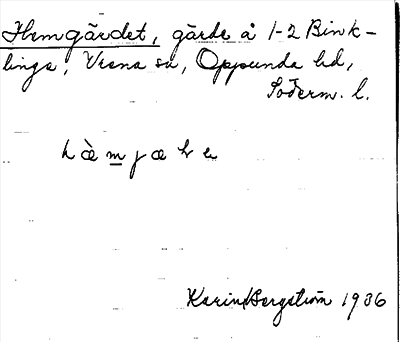 Hemgärdet, gärde å 1-2 Bink-
linge, Vrena sn, Oppunda hd,
Söderm. l.
Karin Bergström 1936